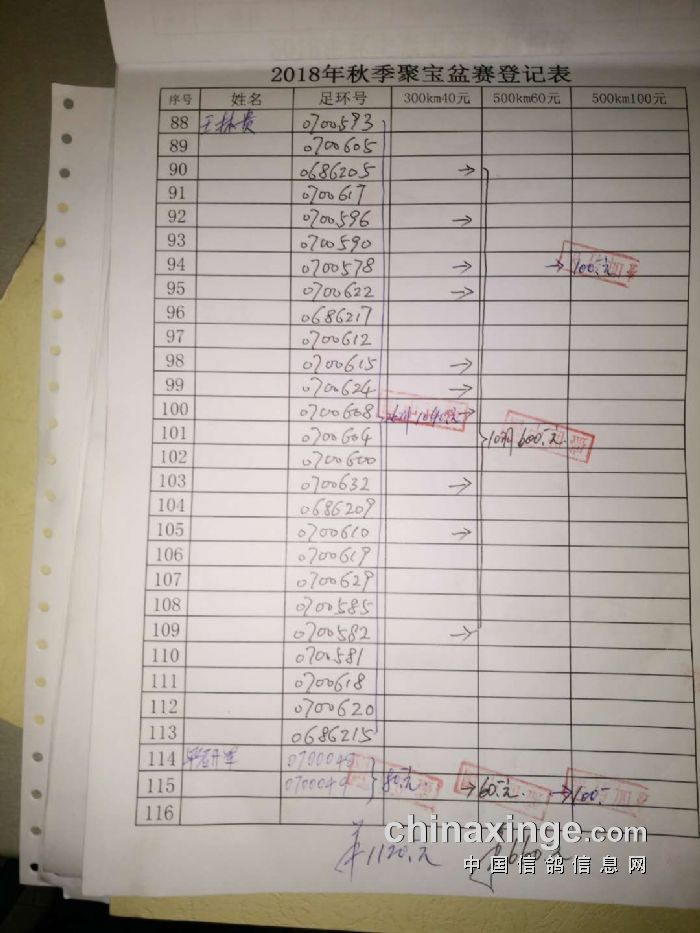 2018年秋季聚宝盆赛登记表
序号 姓名 足环号 300km40元 500km60元 500km100元
88 王林贵 0700593
89 0700605
90 0686205 →
91 0700617
92 0700596 →
93 0700590
94 0700578 → → 100.元
95 0700622 →
96 0686217
97 0700612
98 0700615 →
99 0700624 →
100 0700608 26羽1040元 →
101 0700604 10羽600.元
102 0700600
103 0700632 →
104 0686209
105 0700610 →
106 0700619
107 0700629
108 0700585
109 0700582 →
110 0700581
111 0700618
112 0700620
113 0686215
114 0700045
115 0700049 80元 → 60元. → 100
116
1120.元 660.元
chinaxinge.com
中国信鸽信息网